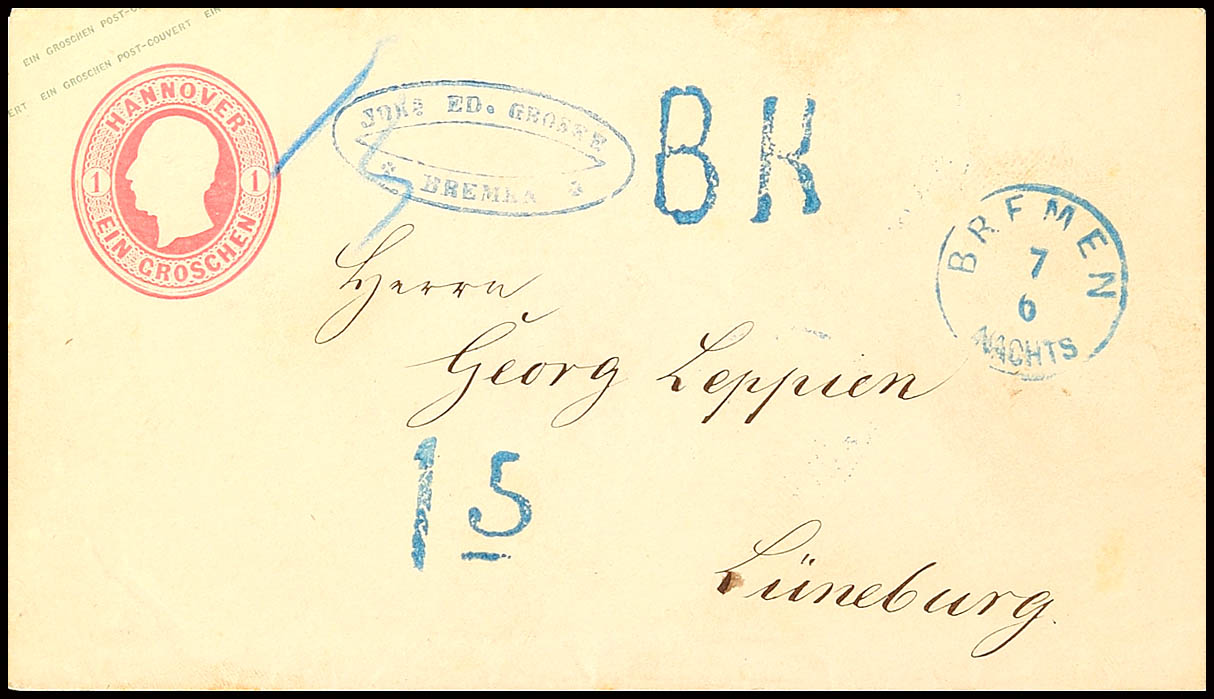 EIN GROSCHEN POST-COUVERT EIN
EIN GROSCHEN POST-COUVERT EIN
HANNOVER
1 1
EIN GROSCHEN
JOHS ED. GROSKE
* BREMEN *
BK
BREMEN
7
6
NACHTS
Herrn
Georg Leppien
1 5
Lüneburg.